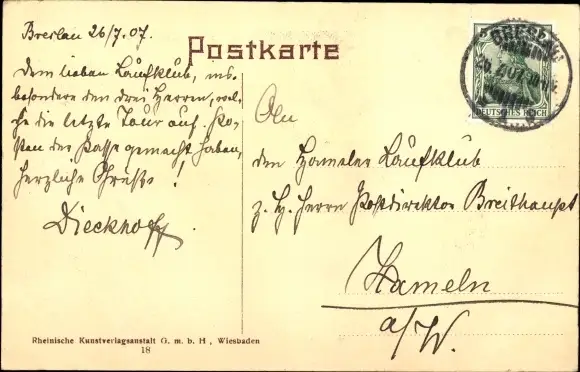 Breslau 26/7.07.
Postkarte
Dem lieben Laufklub, ins-
besondere den drei Herren, wel-
che die letzte Tour auf Ko-
sten der Kasse gemacht haben,
herzliche Grüße!
Dieckhoff
BRESLAU
26.7.07
DEUTSCHES REICH
An
den Hamelner Laufklub
z. H. Herrn Postdirektor Breithaupt
Hameln
a/W.
Rheinische Kunstverlagsanstalt G. m. b. H., Wiesbaden
18